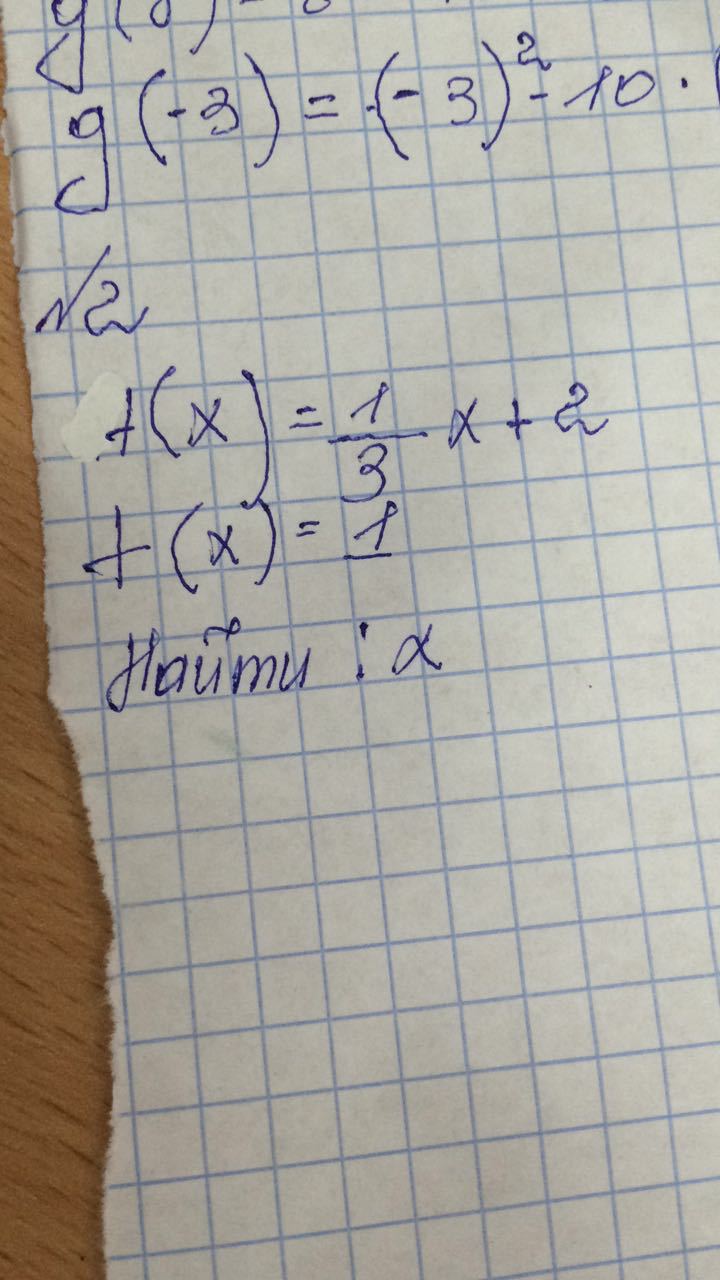 g(-3) = (-3)² - 10 · (
№2
f(x) = 1/3 x + 2
f(x) = 1
Найти : x